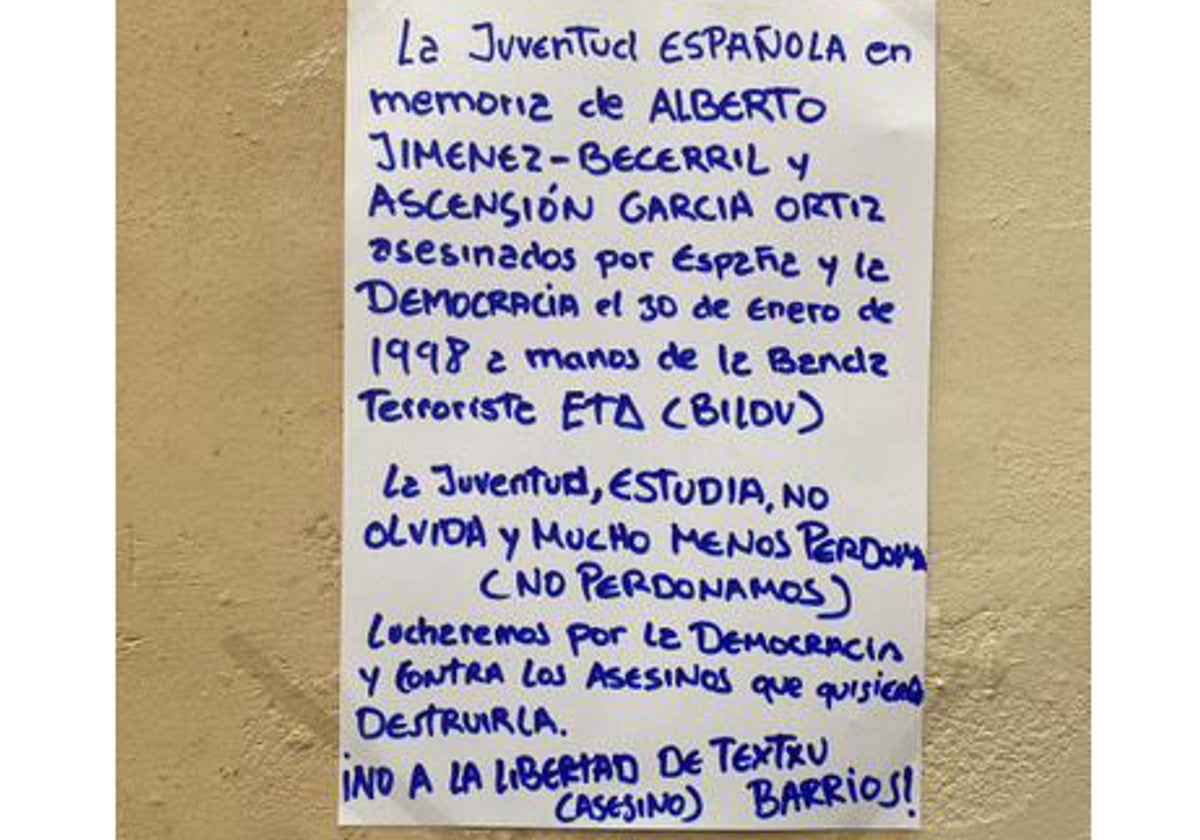 La Juventud ESPAÑOLA en
memoria de ALBERTO
JIMENEZ-BECERRIL y
ASCENSIÓN GARCIA ORTIZ
asesinados por España y la
DEMOCRACIA el 30 de Enero de
1998 a manos de la Banda
Terrorista ETA (BILDU)
La Juventud, ESTUDIA, NO
OLVIDA y MUCHO MENOS PERDONA
(NO PERDONAMOS)
Lucharemos por la DEMOCRACIA
y CONTRA LOS ASESINOS que quisieron
DESTRUIRLA.
¡NO A LA LIBERTAD DE TEXTXU
(ASESINO) BARRIOS!